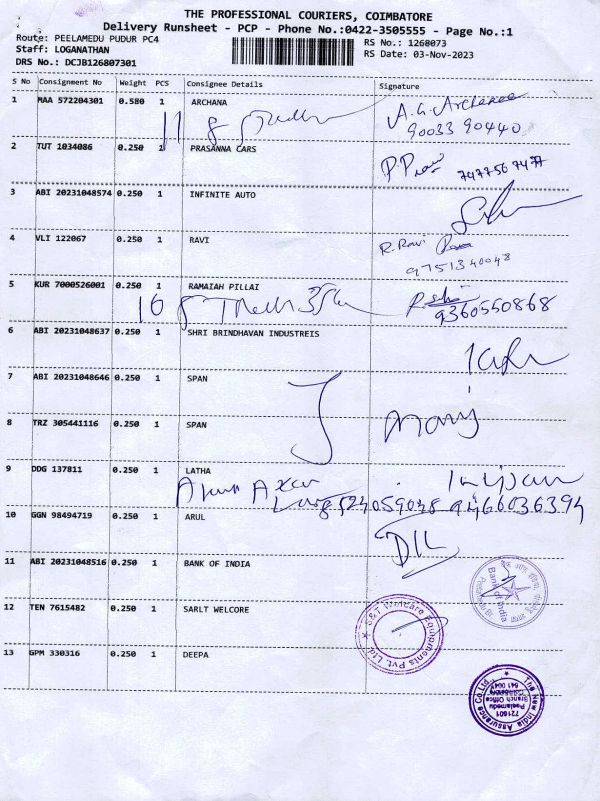 THE PROFESSIONAL COURIERS, COIMBATORE
Delivery Runsheet - PCP - Phone No.:0422-3505555 - Page No.:1
Route: PEELAMEDU PUDUR PC4
RS No.: 1268073
Staff: LOGANATHAN
RS Date: 03-Nov-2023
DRS No.: DCJB126807301
S No Consignment No Weight PCS Consignee Details Signature
1 MAA 572204301 0.580 1 ARCHANA
A.G. Archana
90033 90440
2 TUT 1034086 0.250 1 PRASANNA CARS
7477567477
3 ABI 20231048574 0.250 1 INFINITE AUTO
4 VLI 122067 0.250 1 RAVI
R. Ravi
9751340048
5 KUR 7000526001 0.250 1 RAMAIAH PILLAI
9360550868
6 ABI 20231048637 0.250 1 SHRI BRINDHAVAN INDUSTREIS
7 ABI 20231048646 0.250 1 SPAN
8 TRZ 305441116 0.250 1 SPAN
9 DDG 137811 0.250 1 LATHA
9466036394
10 GGN 98494719 0.250 1 ARUL
11 ABI 20231048516 0.250 1 BANK OF INDIA
Bank of India
12 TEN 7615482 0.250 1 SARLT WELCORE
S&T Welcare Equipments Pvt. Ltd.
13 GPM 330316 0.250 1 DEEPA
The New India Assurance Co. Ltd.,
721601
Peelamedu
Branch Office
641 004